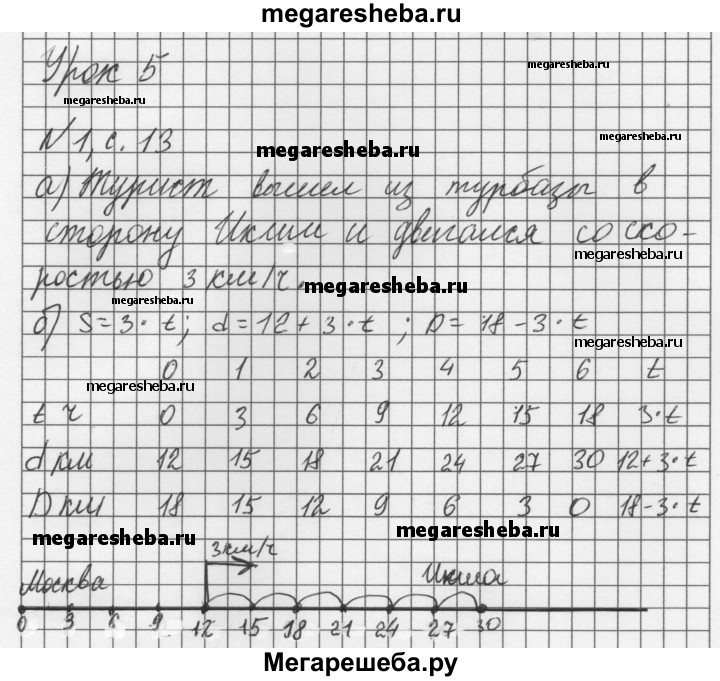 megaresheba.ru
Урок 5
megaresheba.ru
megaresheba.ru
N 1, с. 13
megaresheba.ru
megaresheba.ru
а) Турист вышел из турбазы в
сторону Икши и двигался со ско-
megaresheba.ru
ростью 3 км/ч.
megaresheba.ru
megaresheba.ru
б) S=3·t; d=12+3·t; D=18-3·t
megaresheba.ru
0 1 2 3 4 5 6 t
megaresheba.ru
t ч 0 3 6 9 12 15 18 3·t
d км 12 15 18 21 24 27 30 12+3·t
D км 18 15 12 9 6 3 0 18-3·t
megaresheba.ru
megaresheba.ru
3км/ч
Москва Икша
0 3 6 9 12 15 18 21 24 27 30
Мегарешеба.ру